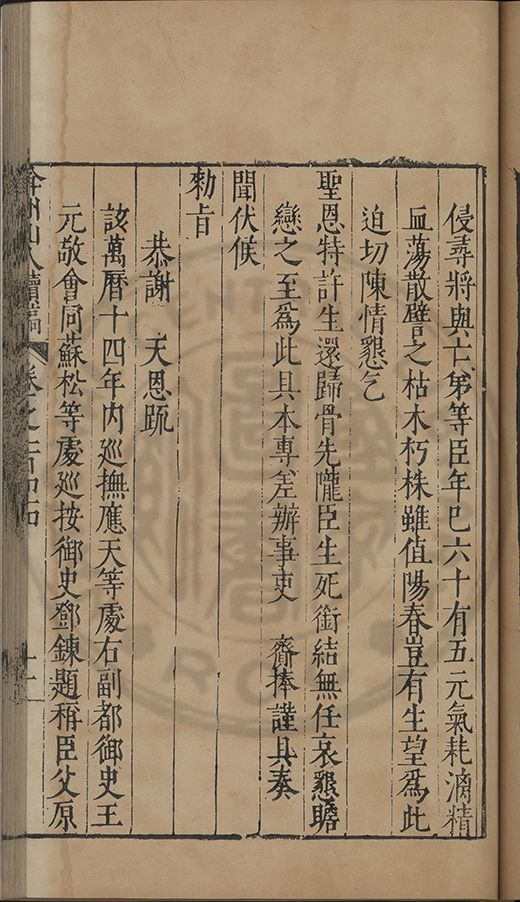 侵尋將與亡弟等臣年已六十有五元氣耗漓精
血蕩散譬之枯木朽株雖值陽春豈有生望為此
迫切陳情懇乞
聖恩特許生還歸骨先隴臣生死銜結無任哀懇瞻
戀之至為此具本專差辦事吏 齎捧謹具奏
聞伏候
勑旨
恭謝 天恩疏
該萬曆十四年內巡撫應天等處右副都御史王
元敬會同蘇松等處巡按御史鄧鍊題稱臣父原
弇州山人續稿 卷之